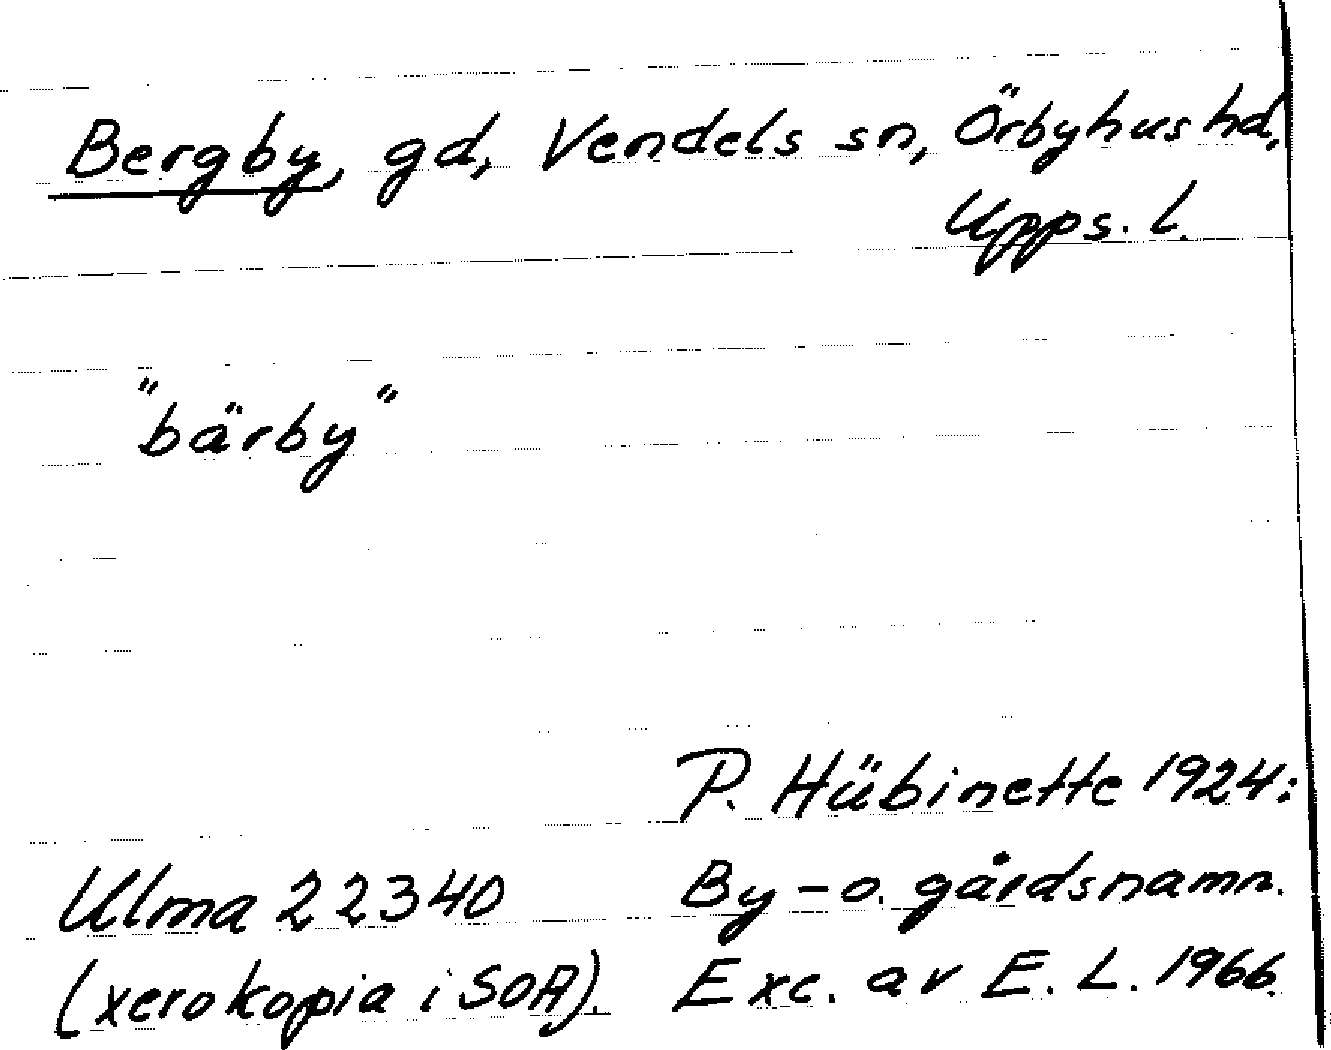 Bergby, gd, Vendels sn, Örbyhus hd,
Upps. l.
"bärby"
P. Hübinette 1924:
Ulma 22340 By- o. gårdsnamn.
(xerokopia i SOA). Exc. av E. L. 1966.